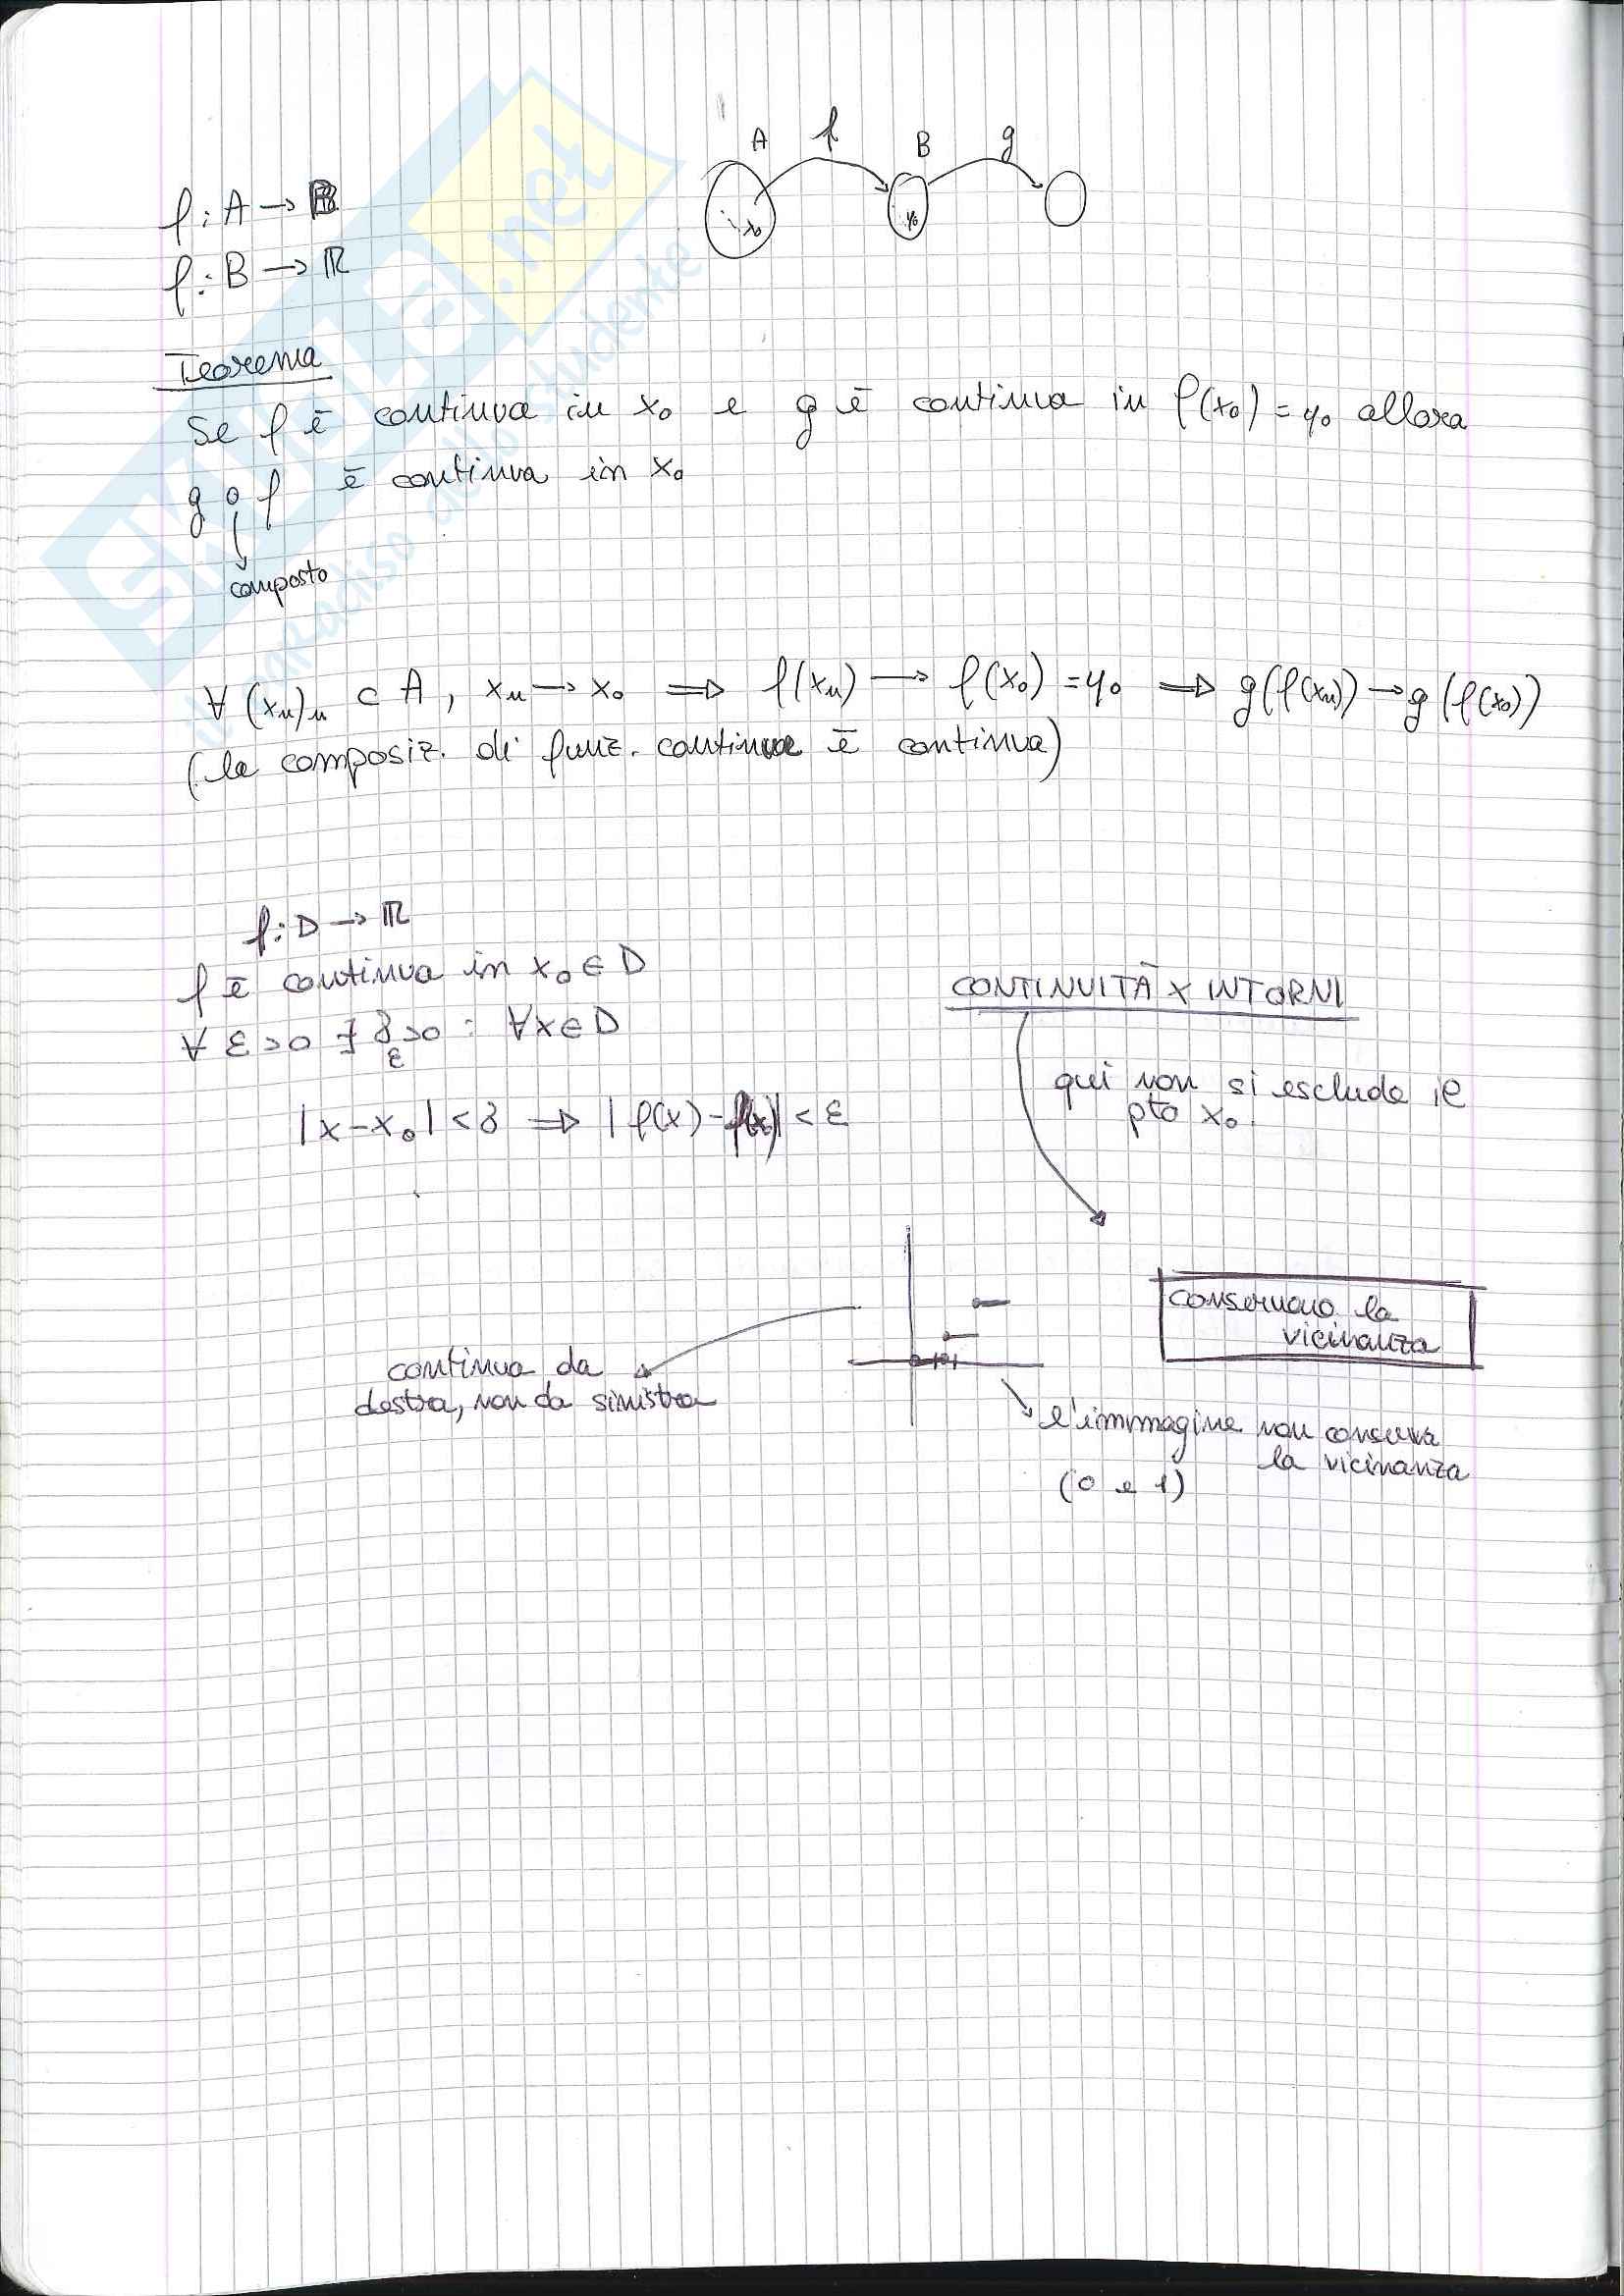 A f B g
x₀ y₀
f: A → B
f: B → ℝ
Teorema
Se f è continua in x₀ e g è continua in f(x₀) = y₀ allora
g ∘ f è continua in x₀
composto
∀ (xₙ)ₙ ⊂ A, xₙ → x₀ ⟹ f(xₙ) → f(x₀) = y₀ ⟹ g(f(xₙ)) → g(f(x₀))
(la composiz. di funz. continue è continua)
f: D → ℝ
f è continua in x₀ ∈ D
∀ ε > 0 ∃ δ_ε > 0 : ∀x ∈ D
|x - x₀| < δ ⟹ | f(x) - f(x₀)| < ε
CONTINUITÀ X INTORNI
qui non si esclude il
pto x₀!
conservano la
vicinanza
continua da
destra, non da sinistra
l'immagine non conserva
la vicinanza
(0 e 1)
skuola.net
il paradiso dello studente